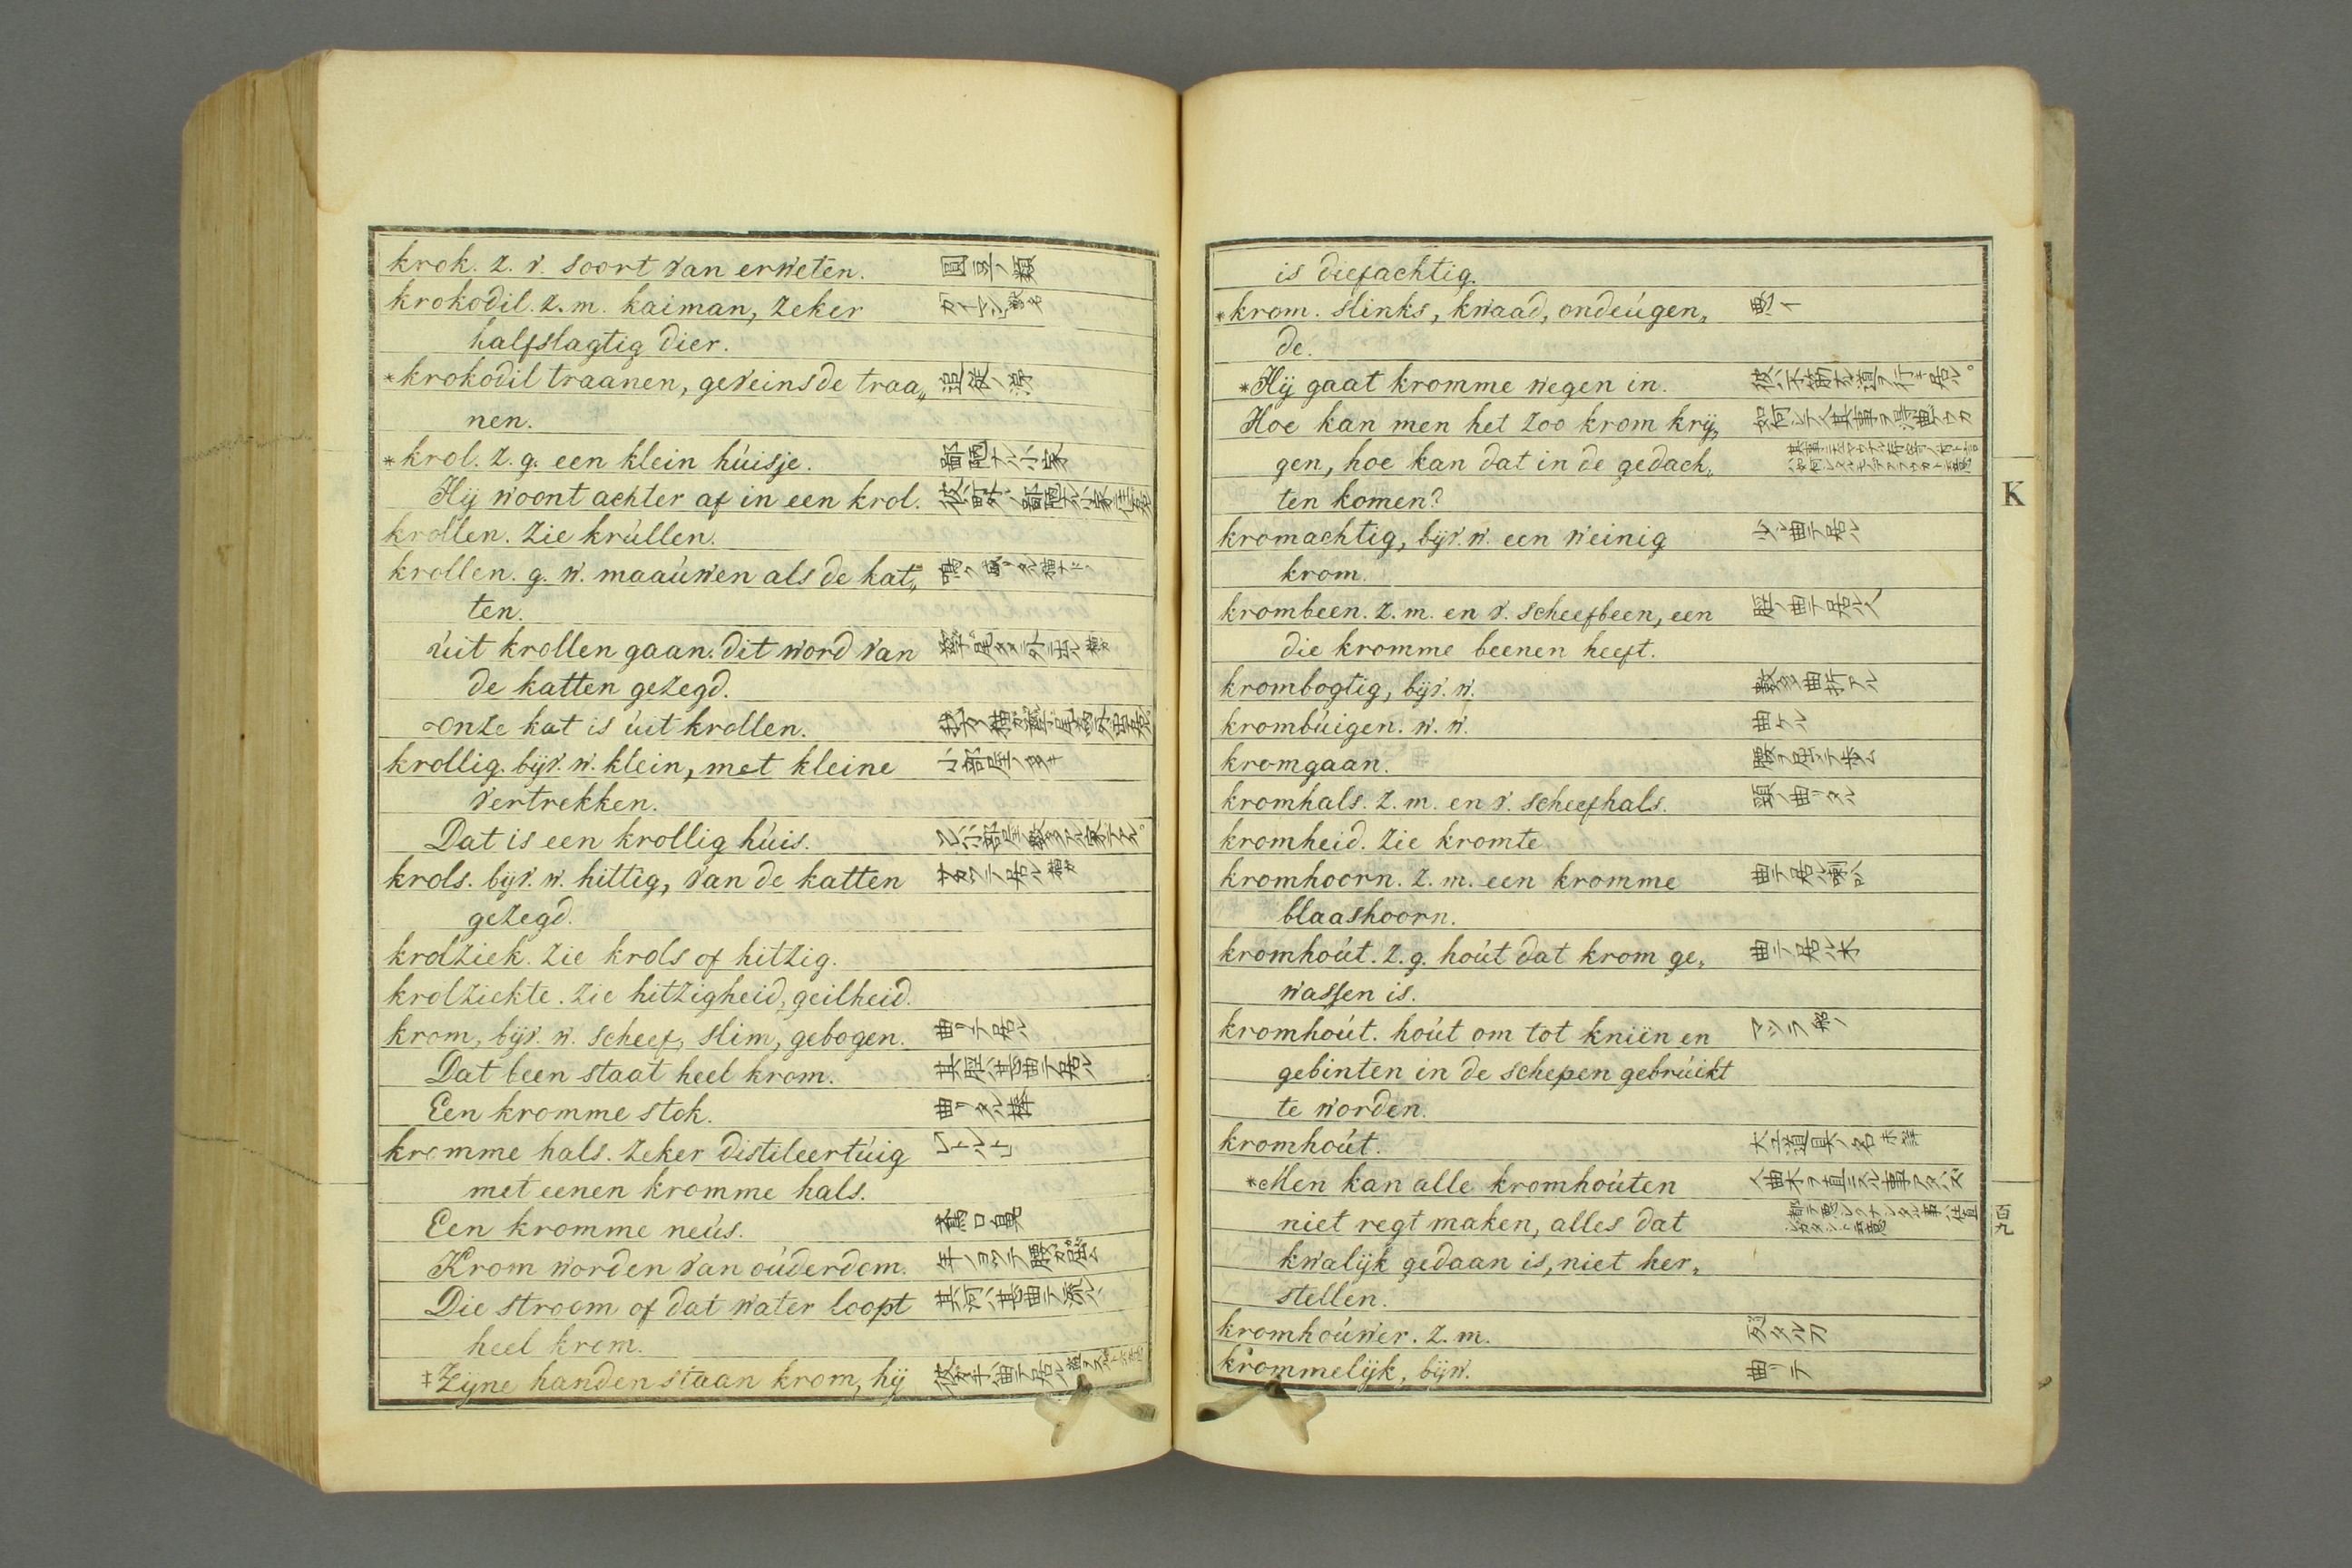 krok. z. v. soort van erweten. 圓豆ノ類
krokodil. z. m. kaiman, zeker カイマン 獣名
halfslagtig dier.
*krokodil traanen, geveinsde traa„ 追従ノ涙
nen.
*krol. z. g. een klein húisje. 鄙陋ナル小家
Hij woont achter af in een krol. 彼ハ町外ノ鄙陋ナル小家ニ住居ル
krollen. zie krúllen.
krollen. g. w. maaúwen als de kat„
ten.
úit krollen gaan. dit word van
de katten gezegd.
onze kat is úit krollen.
krollig. bijv. w. klein, met kleine 小部屋ノ多キ
vertrekken.
Dat is een krollig húis.
krols. bijv. w. hittig, van de katten
gezegd.
krolziek. zie krols of hitzig.
krolziekte. zie hitzigheid, geilheid.
krom, bijv. w. scheef, slim, gebogen. 曲リテ居ル
Dat been staat heel krom. 其脛ハ甚曲テ居ル
Een kromme stok. 曲リタル棒
kromme hals. zeker distileertúig
met eenen kromme hals.
Een kromme neús.
Krom worden van oúderdom. 年ノヨツテ腰カ屈ム
Die stroom of dat water loopt 其河ハ甚曲テ流ル
heel krom.
‡Zijne handen staan krom, hij
is diefachtig.
*krom. slinks, kwaad, ondeúgen„ 悪イ
de.
*Hij gaat kromme wegen in.
Hoe kan men het zoo krom krij„
gen, hoe kan dat in de gedach„
ten komen?
kromachtig, bijv. w. een weinig 少シ曲テ居ル
krom.
krombeen. z. m. en v. scheefbeen, een 脛ノ曲テ居ル人
die kromme beenen heeft.
krombogtig, bijv. w. 数多曲折アル
krombúigen. w. w. 曲ケル
kromgaan. 腰ヲ屈テ歩ム
kromhals. z. m. en v. scheefhals. 頸ノ曲リタル
kromheid. zie kromte
kromhoorn. z. m. een kromme 曲テ居ル喇叭
blaashoorn.
kromhoút. z. g. hoút dat krom ge„ 曲テ居ル木
wassen is.
kromhoút. hoút om tot kniën en マツラ 船ノ
gebinten in de schepen gebrúikt
te worden.
kromhoút. 大工道具ノ名 未詳
*Men kan alle kromhoúten
niet regt maken, alles dat
kwalijk gedaan is, niet her„
stellen.
kromhoúwer. z. m.
krommelijk, bijw. 曲リテ
K
百九